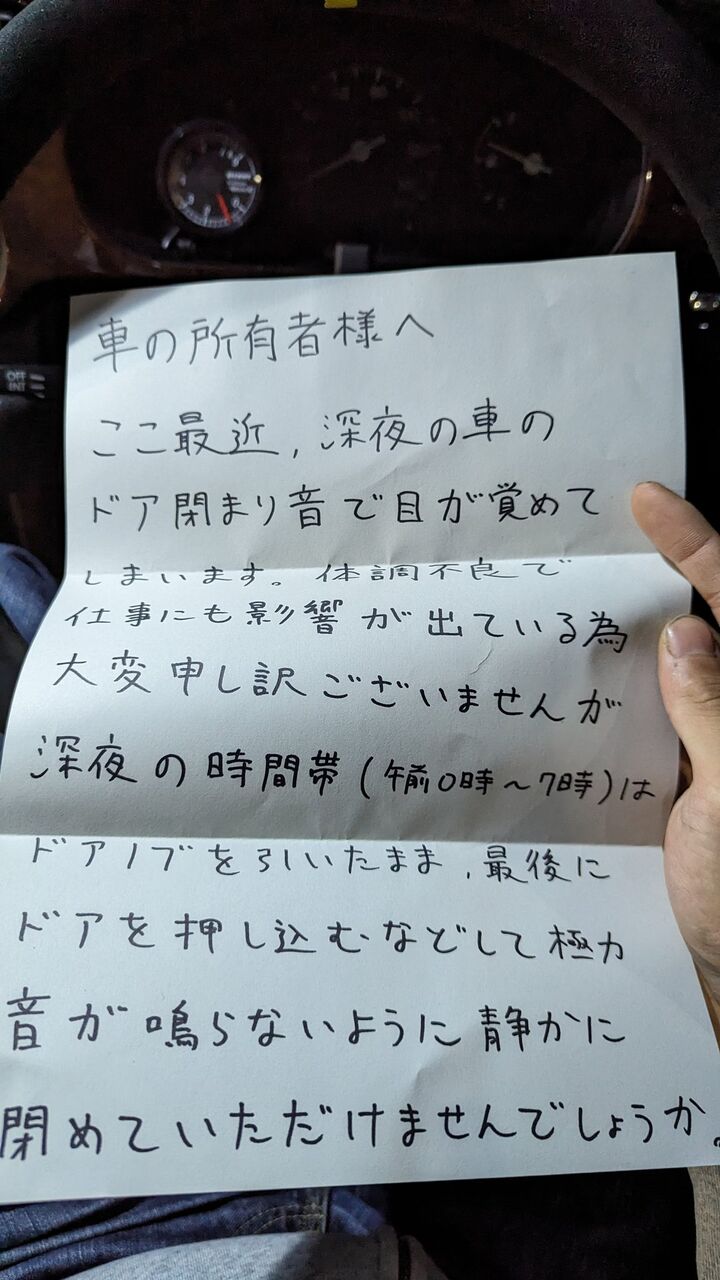 車の所有者様へ
ここ最近,深夜の車の
ドア閉まり音で目が覚めて
しまいます。体調不良で
仕事にも影響が出ている為
大変申し訳ございませんが
深夜の時間帯(午前0時~7時)は
ドアノブを引いたまま,最後に
ドアを押し込むなどして極力
音が鳴らないように静かに
閉めていただけませんでしょうか。
OFF
INT